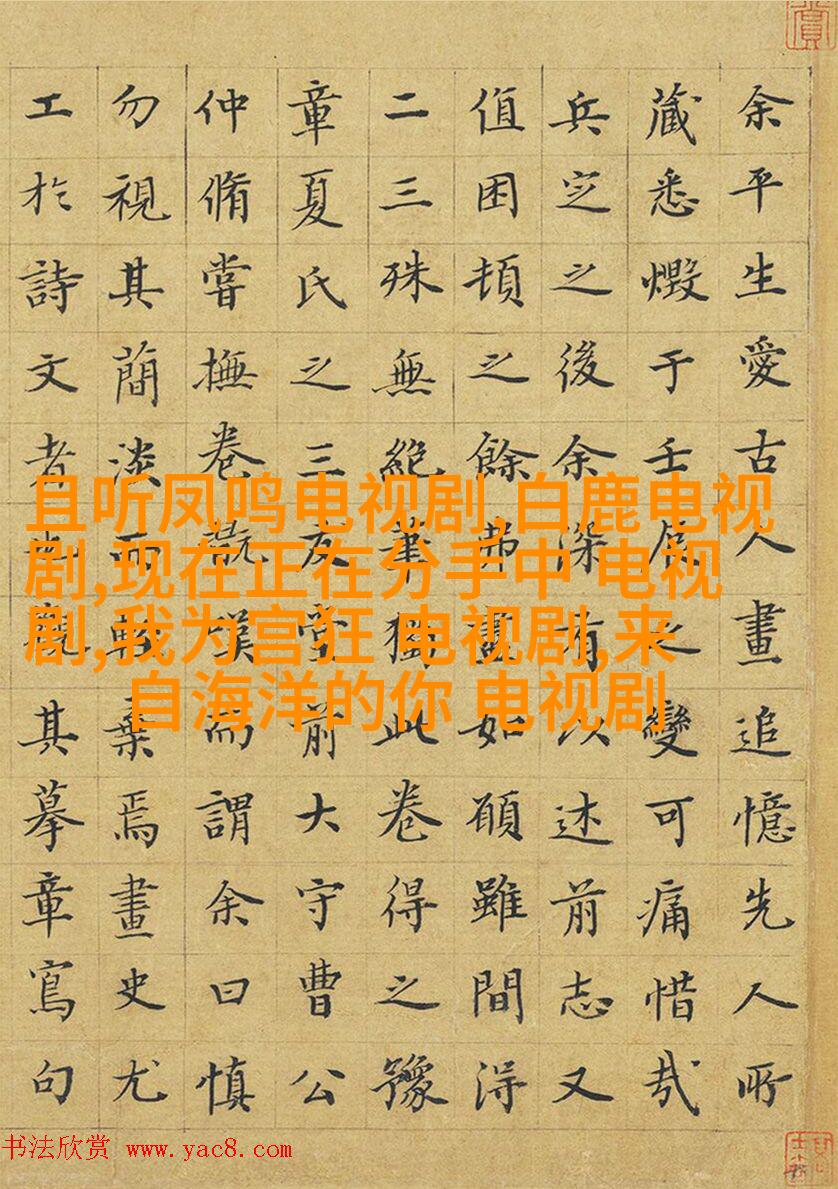 余平生愛古人畫追憶先人所
藏悉燬于壬辰之變可痛惜哉
兵定之後余深有以述前志又
值困頓之餘弗盡如願雖間得
二三殊無絕筆獨此卷得之豫
章夏氏之三友堂前大守曹公
仲脩嘗撫卷翫嘆而謂余曰慎
勿視其簡淡而輒棄焉畫史尤
工於詩文者也觀其摹章寫句
且听凤鸣电视剧,白鹿电视
剧,现在正在分手中 电视
剧,我为宫狂 电视剧,来
自海洋的你 电视剧
书法欣赏 www.yac8.com